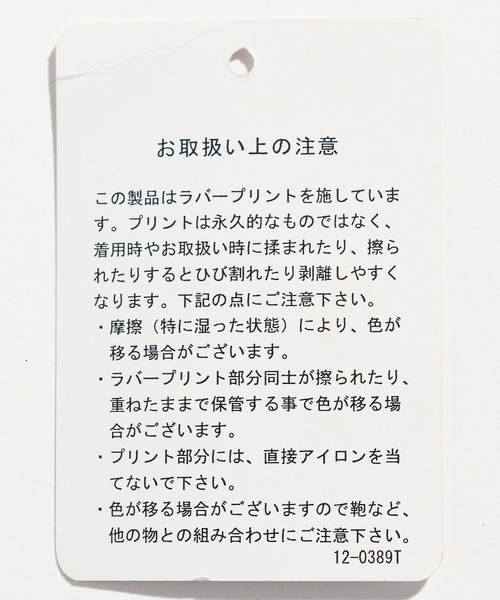 お取扱い上の注意
この製品はラバープリントを施していま
す。プリントは永久的なものではなく、
着用時やお取扱い時に揉まれたり、擦ら
れたりするとひび割れたり剥離しやすく
なります。下記の点にご注意下さい。
・摩擦（特に湿った状態）により、色が
移る場合がございます。
・ラバープリント部分同士が擦られたり、
重ねたままで保管する事で色が移る場
合がございます。
・プリント部分には、直接アイロンを当
てないで下さい。
・色が移る場合がございますので鞄など、
他の物との組み合わせにご注意下さい。
12-0389T